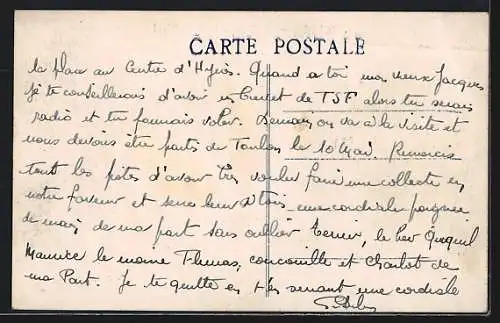 CARTE POSTALE
la place au Centre d'Hyères. Quand a toi mon vieux Jacques
je te conseillerais d'avoir un brevet de TSF alors tu serais
radio et tu pourrais voler. Demain on va à la visite et
nous devons être partis de Toulon le 10 Mai. Remercie
tout les potes d'avoir très voulu faire une collecte en
notre faveur et serre leur à tous une cordiale poignée
de main de ma part sans oublier le
Maurice le moine Thomas, et Charlot de
ma Part. Je te quitte en t'en serrant une cordiale